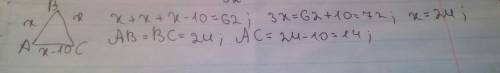 B
x x
x+x+x-10=62; 3x=62+10=72; x=24;
A x-10 C
AB=BC=24; AC=24-10=14;